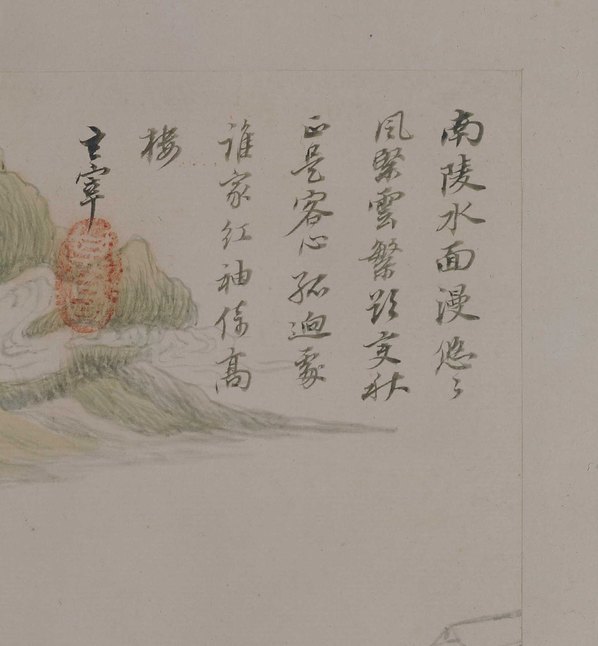 南陵水面漫悠〻
風緊雲繁欲變秋
正是客心孤迥處
誰家紅袖倚高
樓
玄宰